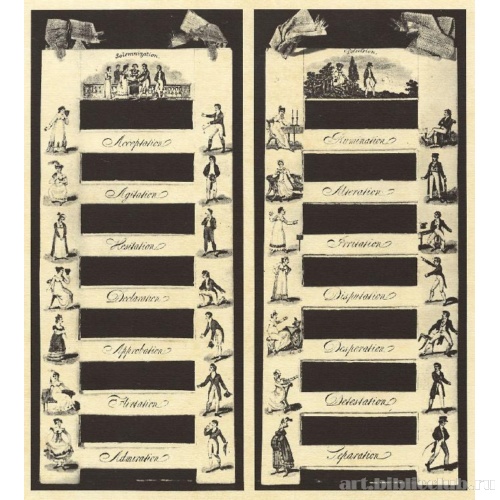 Solemnization.
Acceptation.
Agitation.
Hesitation.
Declaration.
Approbation.
Flirtation.
Admiration.
Rumination.
Alteration.
Irritation.
Disputation.
Desperation.
Detestation.
Separation.
art.biblioclub.ru